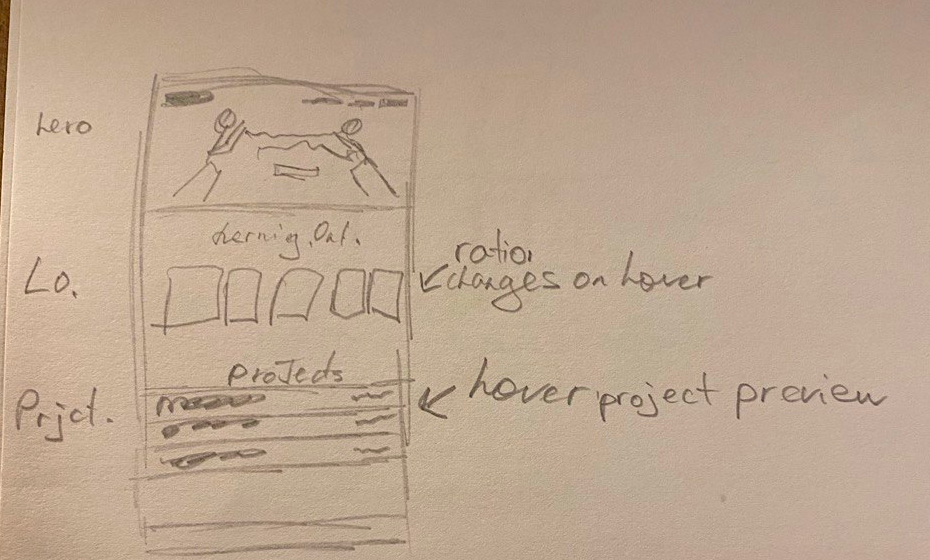 hero
Lerning Out.
Lo.
ratio
changes on hover
Projects
Prjct.
hover project preview